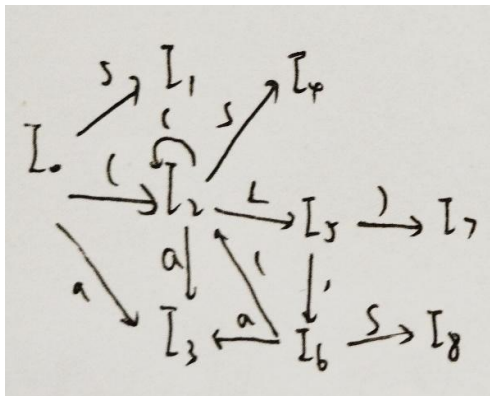 S I₁ I₄
( S
I₀ ( I₂ L I₅ ) I₇
a a ( ,
I₃ a I₆ S I₈